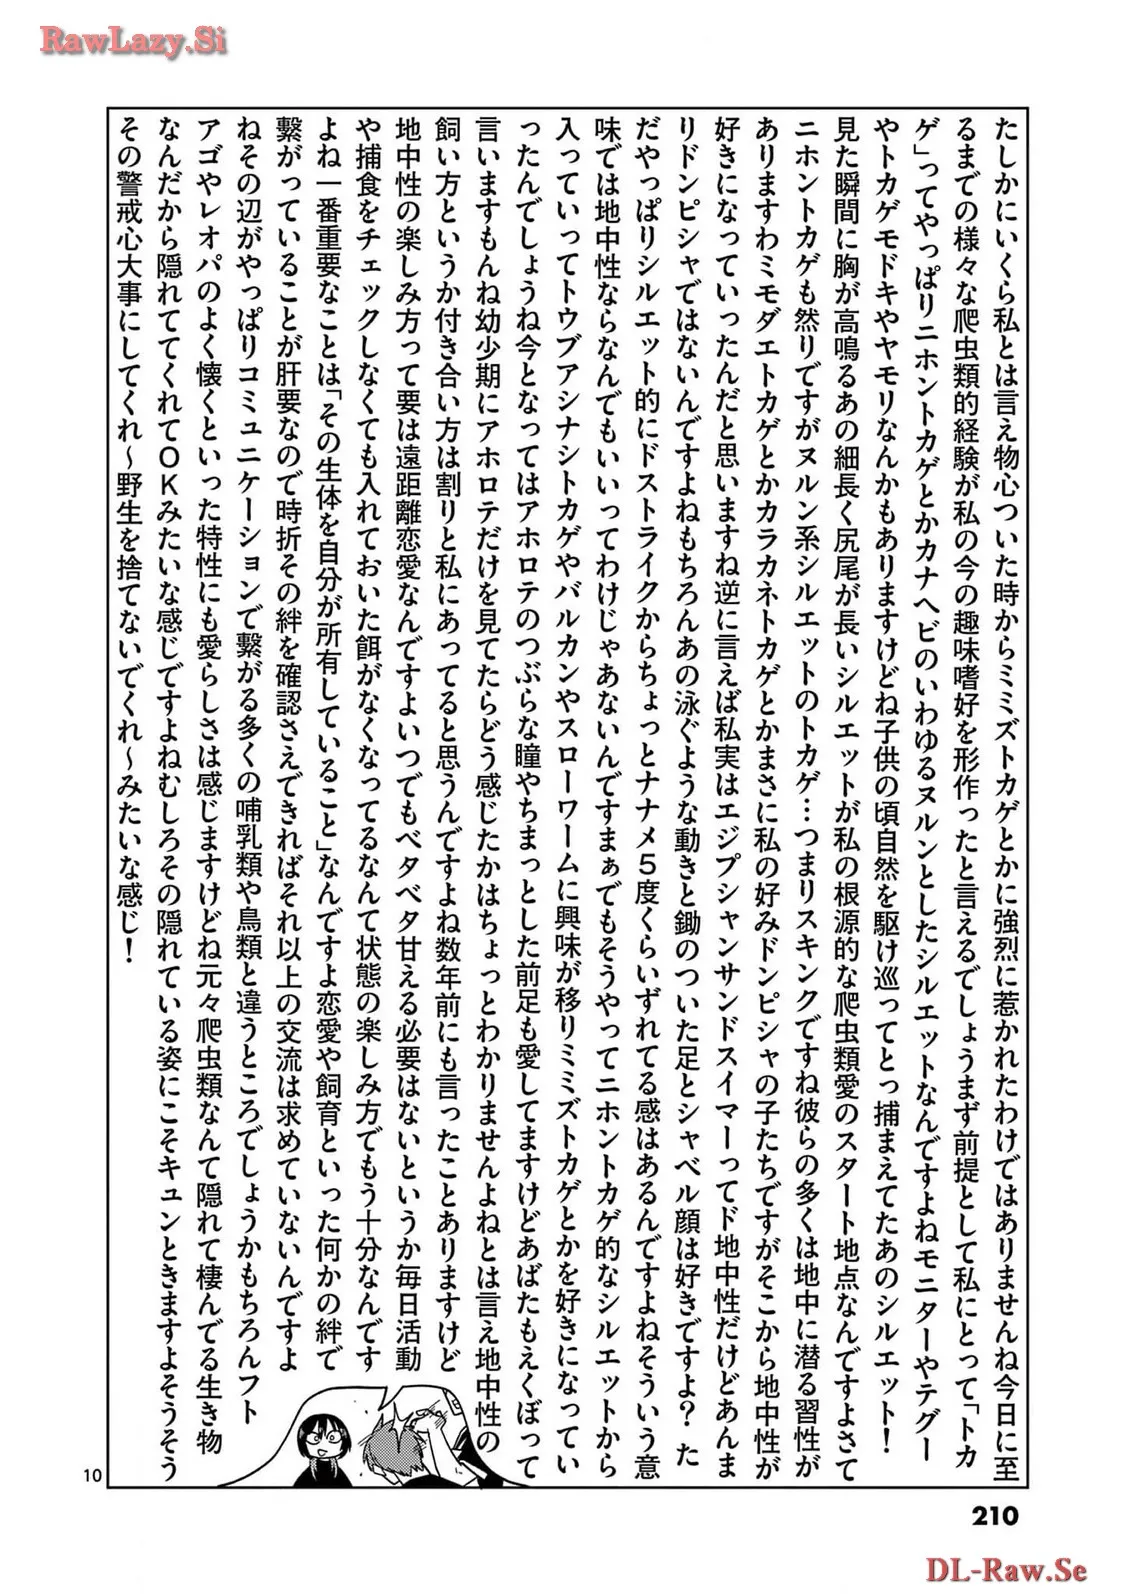 RawLazy.Si
たしかにいくら私とは言え物心ついた時からミミズトカゲとかに強烈に惹かれたわけではありませんね今日に至
るまでの様々な爬虫類的経験が私の今の趣味嗜好を形作ったと言えるでしょうまず前提として私にとって「トカ
ゲ」ってやっぱりニホントカゲとかカナヘビのいわゆるヌルンとしたシルエットなんですよねモニターやテグー
やトカゲモドキやヤモリなんかもありますけどね子供の頃自然を駆け巡ってとっ捕まえてたあのシルエット！
見た瞬間に胸が高鳴るあの細長く尻尾が長いシルエットが私の根源的な爬虫類愛のスタート地点なんですよさて
ニホントカゲも然りですがヌルン系シルエットのトカゲ…つまりスキンクですね彼らの多くは地中に潜る習性が
ありますわミモダエトカゲとかカラカネトカゲとかまさに私の好みドンピシャの子たちですがそこから地中性が
好きになっていったんだと思いますね逆に言えば私実はエジプシャンサンドスイマーってド地中性だけどあんま
りドンピシャではないんですよねもちろんあの泳ぐような動きと鋤のついた足とシャベル顔は好きですよ？た
だやっぱりシルエット的にドストライクからちょっとナナメ５度くらいずれてる感はあるんですよねそういう意
味では地中性ならなんでもいいってわけじゃあないんですまぁでもそうやってニホントカゲ的なシルエットから
入っていってトウブアシナシトカゲやバルカンやスローワームに興味が移りミミズトカゲとかを好きになってい
ったんでしょうね今となってはアホロテのつぶらな瞳やちまっとした前足も愛してますけどあばたもえくぼって
言いますもんね幼少期にアホロテだけを見てたらどう感じたかはちょっとわかりませんよねとは言え地中性の
飼い方というか付き合い方は割りと私にあってると思うんですよね数年前にも言ったことありますけど
地中性の楽しみ方って要は遠距離恋愛なんですよいつでもベタベタ甘える必要はないというか毎日活動
や捕食をチェックしなくても入れておいた餌がなくなってるなんて状態の楽しみ方でもう十分なんです
よね一番重要なことは「その生体を自分が所有していること」なんですよ恋愛や飼育といった何かの絆で
繋がっていることが肝要なので時折その絆を確認さえできればそれ以上の交流は求めていないんですよ
ねその辺がやっぱりコミュニケーションで繋がる多くの哺乳類や鳥類と違うところでしょうかもちろんフト
アゴやレオパのよく懐くといった特性にも愛らしさは感じますけどね元々爬虫類なんて隠れて棲んでる生き物
なんだから隠れててくれてＯＫみたいな感じですよねむしろその隠れている姿にこそキュンときますよそうそう
その警戒心大事にしてくれ～野生を捨てないでくれ～みたいな感じ！
10
210
DL-Raw.Se